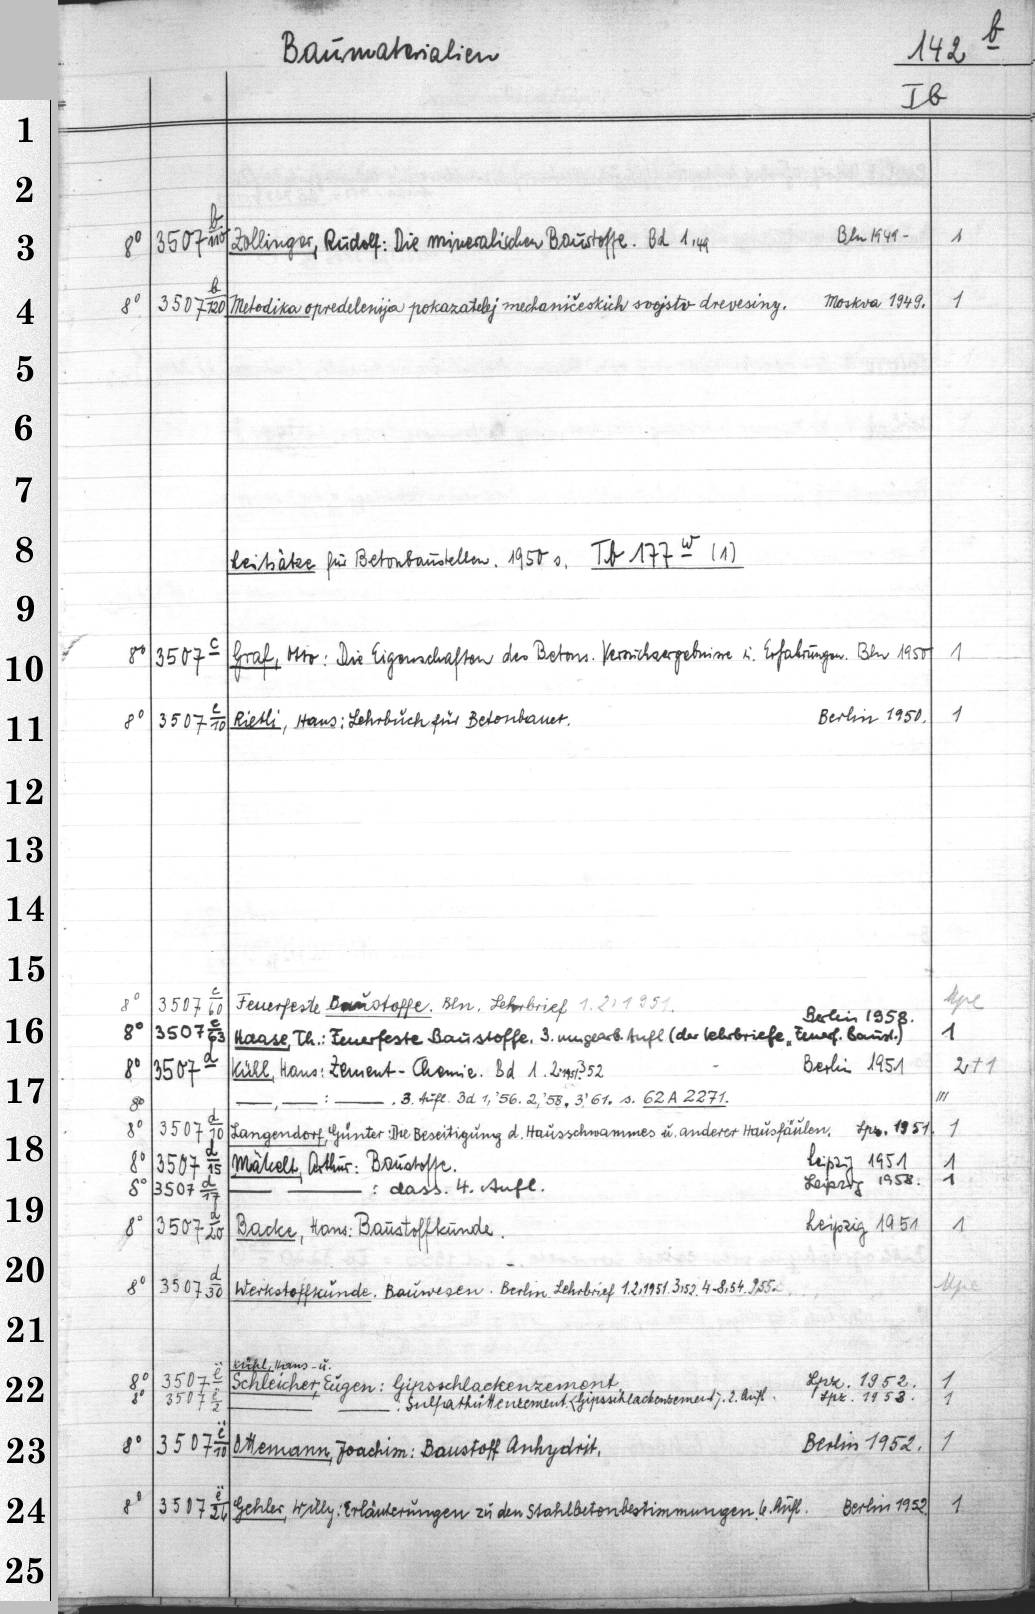 Baumaterialien 142 b
I b
1
2
3 8° 3507 b/110 Zollinger, Rudolf: Die mineralischen Baustoffe. Bd 1,49 Bln 1949- 1
4 8° 3507 b/120 Metodika opredelenija pokazatelej mechaničeskich svojstv drevesiny. Moskva 1949. 1
5
6
7
8 Leitsätze für Betonbaustellen. 1950 s. Tb 177 w (1)
9
10 8° 3507 c Graf, Otto: Die Eigenschaften des Betons. Versuchsergebnisse u. Erfahrungen. Bln 1950 1
11 8° 3507 c/10 Rietli, Hans: Lehrbuch für Betonbauer. Berlin 1950. 1
12
13
14
15
8° 3507 c/60 Feuerfeste Baustoffe. Bln. Lehrbrief 1.2,1951.
16 8° 3507 c/63 Haase, Th.: Feuerfeste Baustoffe. 3. umgearb. Aufl (der Lehrbriefe „Feuerf. Baust.) Berlin 1958. 1
8° 3507 d Kühl, Hans: Zement-Chemie. Bd 1.2,1951.3,52 Berlin 1951 2+1
17 8° —, — : — . 3. Aufl. Bd 1,'56. 2,'58. 3,'61. s. 62 A 2271. "'
8° 3507 d/10 Langendorf, Günter: Die Beseitigung d. Hausschwammes u. anderer Hausfäulen. Lpz. 1951. 1
18 8° 3507 d/15 Mäkelt, Arthur: Baustoffe. Leipzig 1951 1
8° 3507 d/17 — — : dass. 4. Aufl. Leipzig 1958. 1
19 8° 3507 d/20 Backe, Hans: Baustoffkunde. Leipzig 1951 1
20 8° 3507 d/30 Werkstoffkunde. Bauwesen. Berlin. Lehrbrief 1.2,1951. 3,52. 4-8,54. 9,55.
21
Kühl, Hans - u.
22 8° 3507 ë Schleicher, Eugen: Gipsschlackenzement Lpz. 1952. 1
8° 3507 ë/2 — — : Sulfathüttenzement <Gipsschlackenzement>. 2. Aufl. Lpz. 1953. 1
23 8° 3507 ë/10 Ottemann, Joachim: Baustoff Anhydrit. Berlin 1952. 1
24 8° 3507 ë/26 Gehler, Willy: Erläuterungen zu den Stahlbetonbestimmungen. 6. Aufl. Berlin 1952 1
25